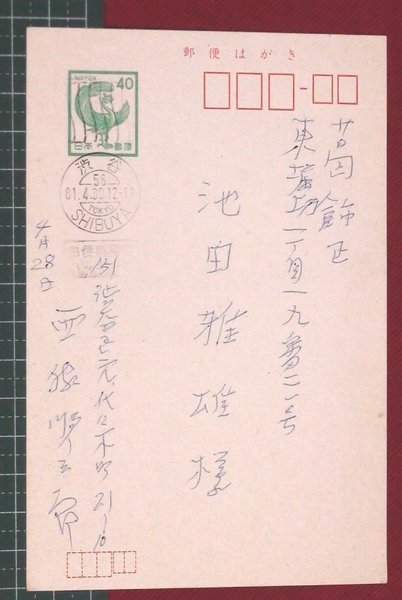 郵便はがき
NIPPON
40
日本郵便
渋谷
56
81.4.
12-18
TOKYO
SHIBUYA
葛飾区
東
丁目一九番二一号
池田雅雄様
(151)渋谷区元代々木町21-
4月28日